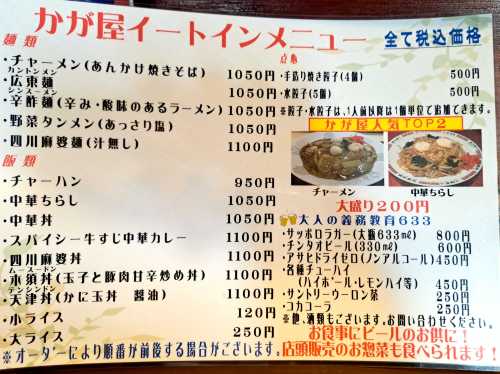 かが屋イートインメニュー 全て税込価格
麺類
・チャーメン(あんかけ焼きそば) 1050円
カントンメン
・広東麺 1050円
シンスーメン
・辛酢麺(辛み・酸味のあるラーメン) 1050円
・野菜タンメン(あっさり塩) 1050円
・四川麻婆麺(汁無し) 1100円
飯類
・チャーハン 950円
・中華ちらし 1050円
・中華丼 1050円
・スパイシー牛すじ中華カレー 1100円
・四川麻婆丼 1100円
ムースードン
・木須丼(玉子と豚肉甘辛炒め丼) 1100円
テンシンドン
・天津丼(かに玉丼 醤油) 1100円
・小ライス 120円
・大ライス 250円
※オーダーにより順番が前後する場合がございます。
点心
・手造り焼き餃子(4個) 500円
・水餃子(5個) 500円
※餃子、水餃子は1人前以降は1個単位で追加できます。
かが屋人気TOP2
チャーメン 中華ちらし
大盛り200円
大人の義務教育633
・サッポロラガー(大瓶633ml) 800円
・チンタオビール(330ml) 600円
・アサヒドライゼロ(ノンアルコール) 450円
・各種チューハイ
(ハイボール・レモンハイ等) 450円
・サントリーウーロン茶 250円
・コカコーラ 250円
※他、酒類もございます。お問い合わせください。
お食事にビールのお供に!
店頭販売のお惣菜も食べられます!